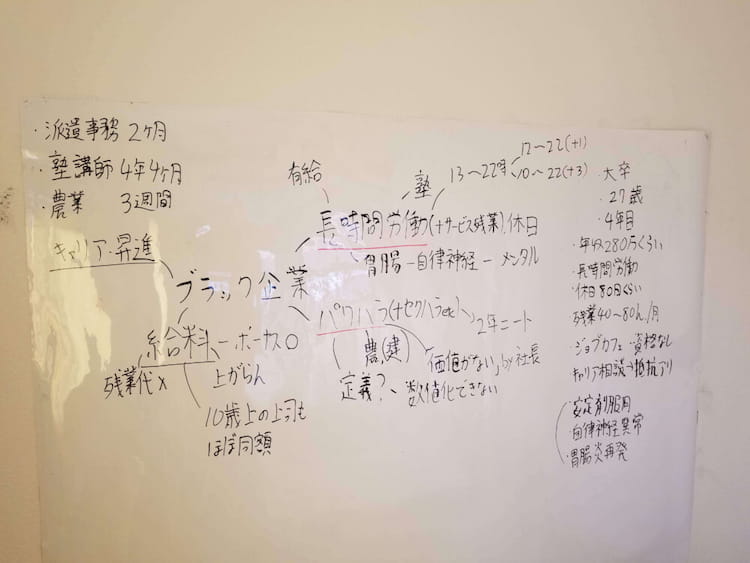 ・派遣事務 2ヶ月
・塾講師 4年4ヶ月
・農業 3週間
キャリア・昇進
ブラック企業
給料ーボーナス○
残業代×
上がらん
10歳上の上司も
ほぼ同額
有給
塾
13〜22時
12〜22(+1)
10〜22(+3)
長時間労働(+サービス残業),休日
胃腸ー自律神経ーメンタル
パワハラ(+セクハラetc)
2年ニート
農,(建)
「価値がない」by社長
定義?〜数値化できない
・大卒
・27歳
・4年目
・年収280万くらい
・長時間労働
・休日80日くらい
・残業40〜80h/月
・ジョブカフェ 資格なし
キャリア相談→抵抗アリ
・安定剤服用
・自律神経異常
・胃腸炎再発